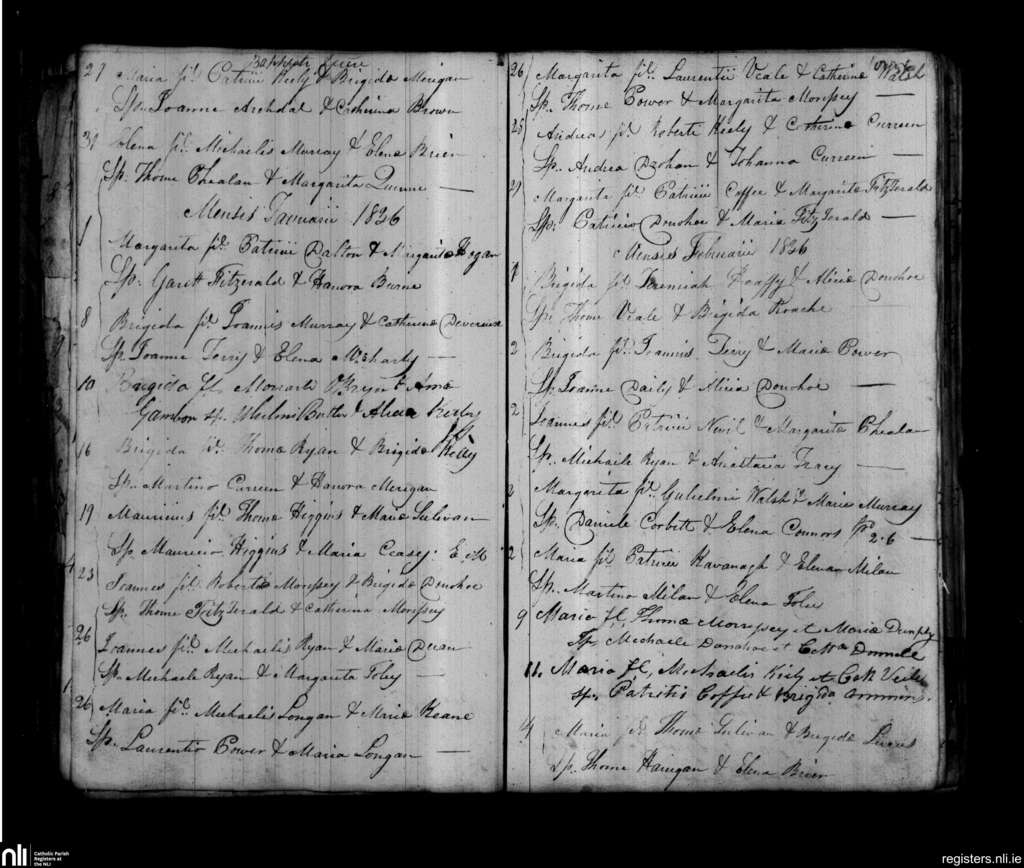 27 Maria fil. Patricii Kiely & Brigidæ Merigan
Sp. Joanne Archdal & Catherina Brown
30 Helena fil. Michaelis Murray & Elenæ Brien
Sp. Thome Phealan & Margarita Quinne
Mensis Januarii 1826
1 Margarita fil. Patricii Dalton & Margaritæ Hogan
Sp. Garett Fitzgerald & Hanora Burne
8 Brigida fil. Joannis Murray & Catherinæ Devereux
Sp. Joanne Terry & Elena
10 Brigida fil. OBryen & Annæ
Sp. & Alicia
16 Brigida fil. Thomæ Ryan & Brigidæ Kelly
Sp. Martino Curreen & Hanora Merigan
19 Mauricius fil. Thomæ Higgins & Mariæ Sulivan
Sp. Mauricio Higgins & Maria Casey.
23 Joannes fil. Roberti Morissey & Brigidæ Donohoe
Sp. Thome FitzGerald & Catherina Morissey
26 Joannes fil. Michaelis Ryan & Mariæ
Sp. Michaele Ryan & Margarita Foley
26 Maria fil. Michaelis Longan & Mariæ Keane
Sp. Laurentio Power & Maria Longan
26 Margarita fil. Laurentii Veale & Catherinæ Walsh
Sp. Thome Power & Margarita Morissey
Andreas fil. Roberti Kiely & Catherinæ Curreen
Sp. Andrea & Johanna Curreen
29 Margarita fil. Patricii Coffee & Margaritæ FitzGerald
Sp. Patricio Donohoe & Maria FitzGerald
Mensis Februarii 1826
1 Brigida fil. Jeremiah & Aliciæ Donohoe
Sp. Thome Veale & Brigida Roache
2 Brigida fil. Joannis Terry & Mariæ Power
Sp. Joanne Daily & Alicia Donohoe
2 Joannes fil. Patricii Nevil & Margaritæ Phealan
Sp. Michaele Ryan & Anastatia Tracy
2 Margareta fil. Gulielmi Walsh & Mariæ Murray
Sp. Daniele Corbett & Elena Connors 2.6
2 Maria fil. Patricii Kavanagh & Elenæ Milan
Sp. Martino Milan & Elena Foley
9 Maria fil. Thomæ Morrissey et Mariæ Dunphy
Sp. Michaele Donohoe et
11. Maria fil. Michaelis Kiely et
Sp. Patritio Coffee & Brigida
4 Maria fil. Thomæ Sulivan & Brigidæ
Sp. Thome Harigan & Elena Brien
nli Catholic Parish
Registers at
the NLI
registers.nli.ie